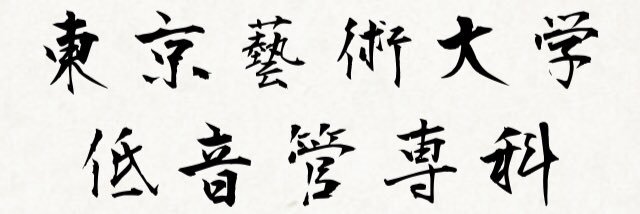 東京藝術大学
低音管専科